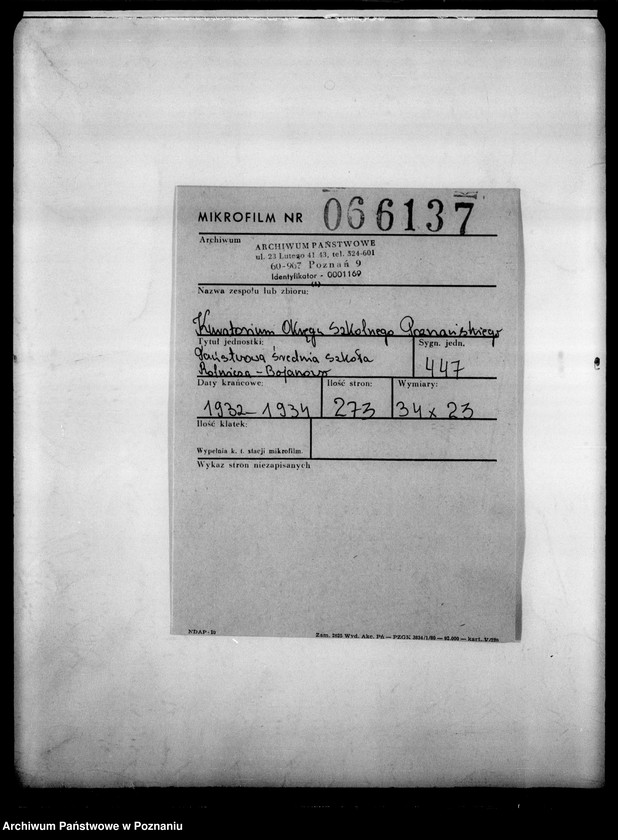 MIKROFILM NR 066137
Archiwum
ARCHIWUM PAŃSTWOWE
ul. 23 Lutego 41 43, tel. 524-601
60-967 Poznań 9
Identyfikator - 0001169
Nazwa zespołu lub zbioru:
Kuratorium Okręgu Szkolnego Poznańskiego
Tytuł jednostki:
Sygn. jedn.
Państwowa średnia szkoła
Rolnicza - Bojanowo
447
Daty krańcowe:
Ilość stron:
Wymiary:
1932-1934
273
34 x 23
Ilość klatek:
Wypełnia k. t. stacji mikrofilm.
Wykaz stron niezapisanych
NDAP-10
Zam. Wyd. Akc. PA — PZGK
Archiwum Państwowe w Poznaniu